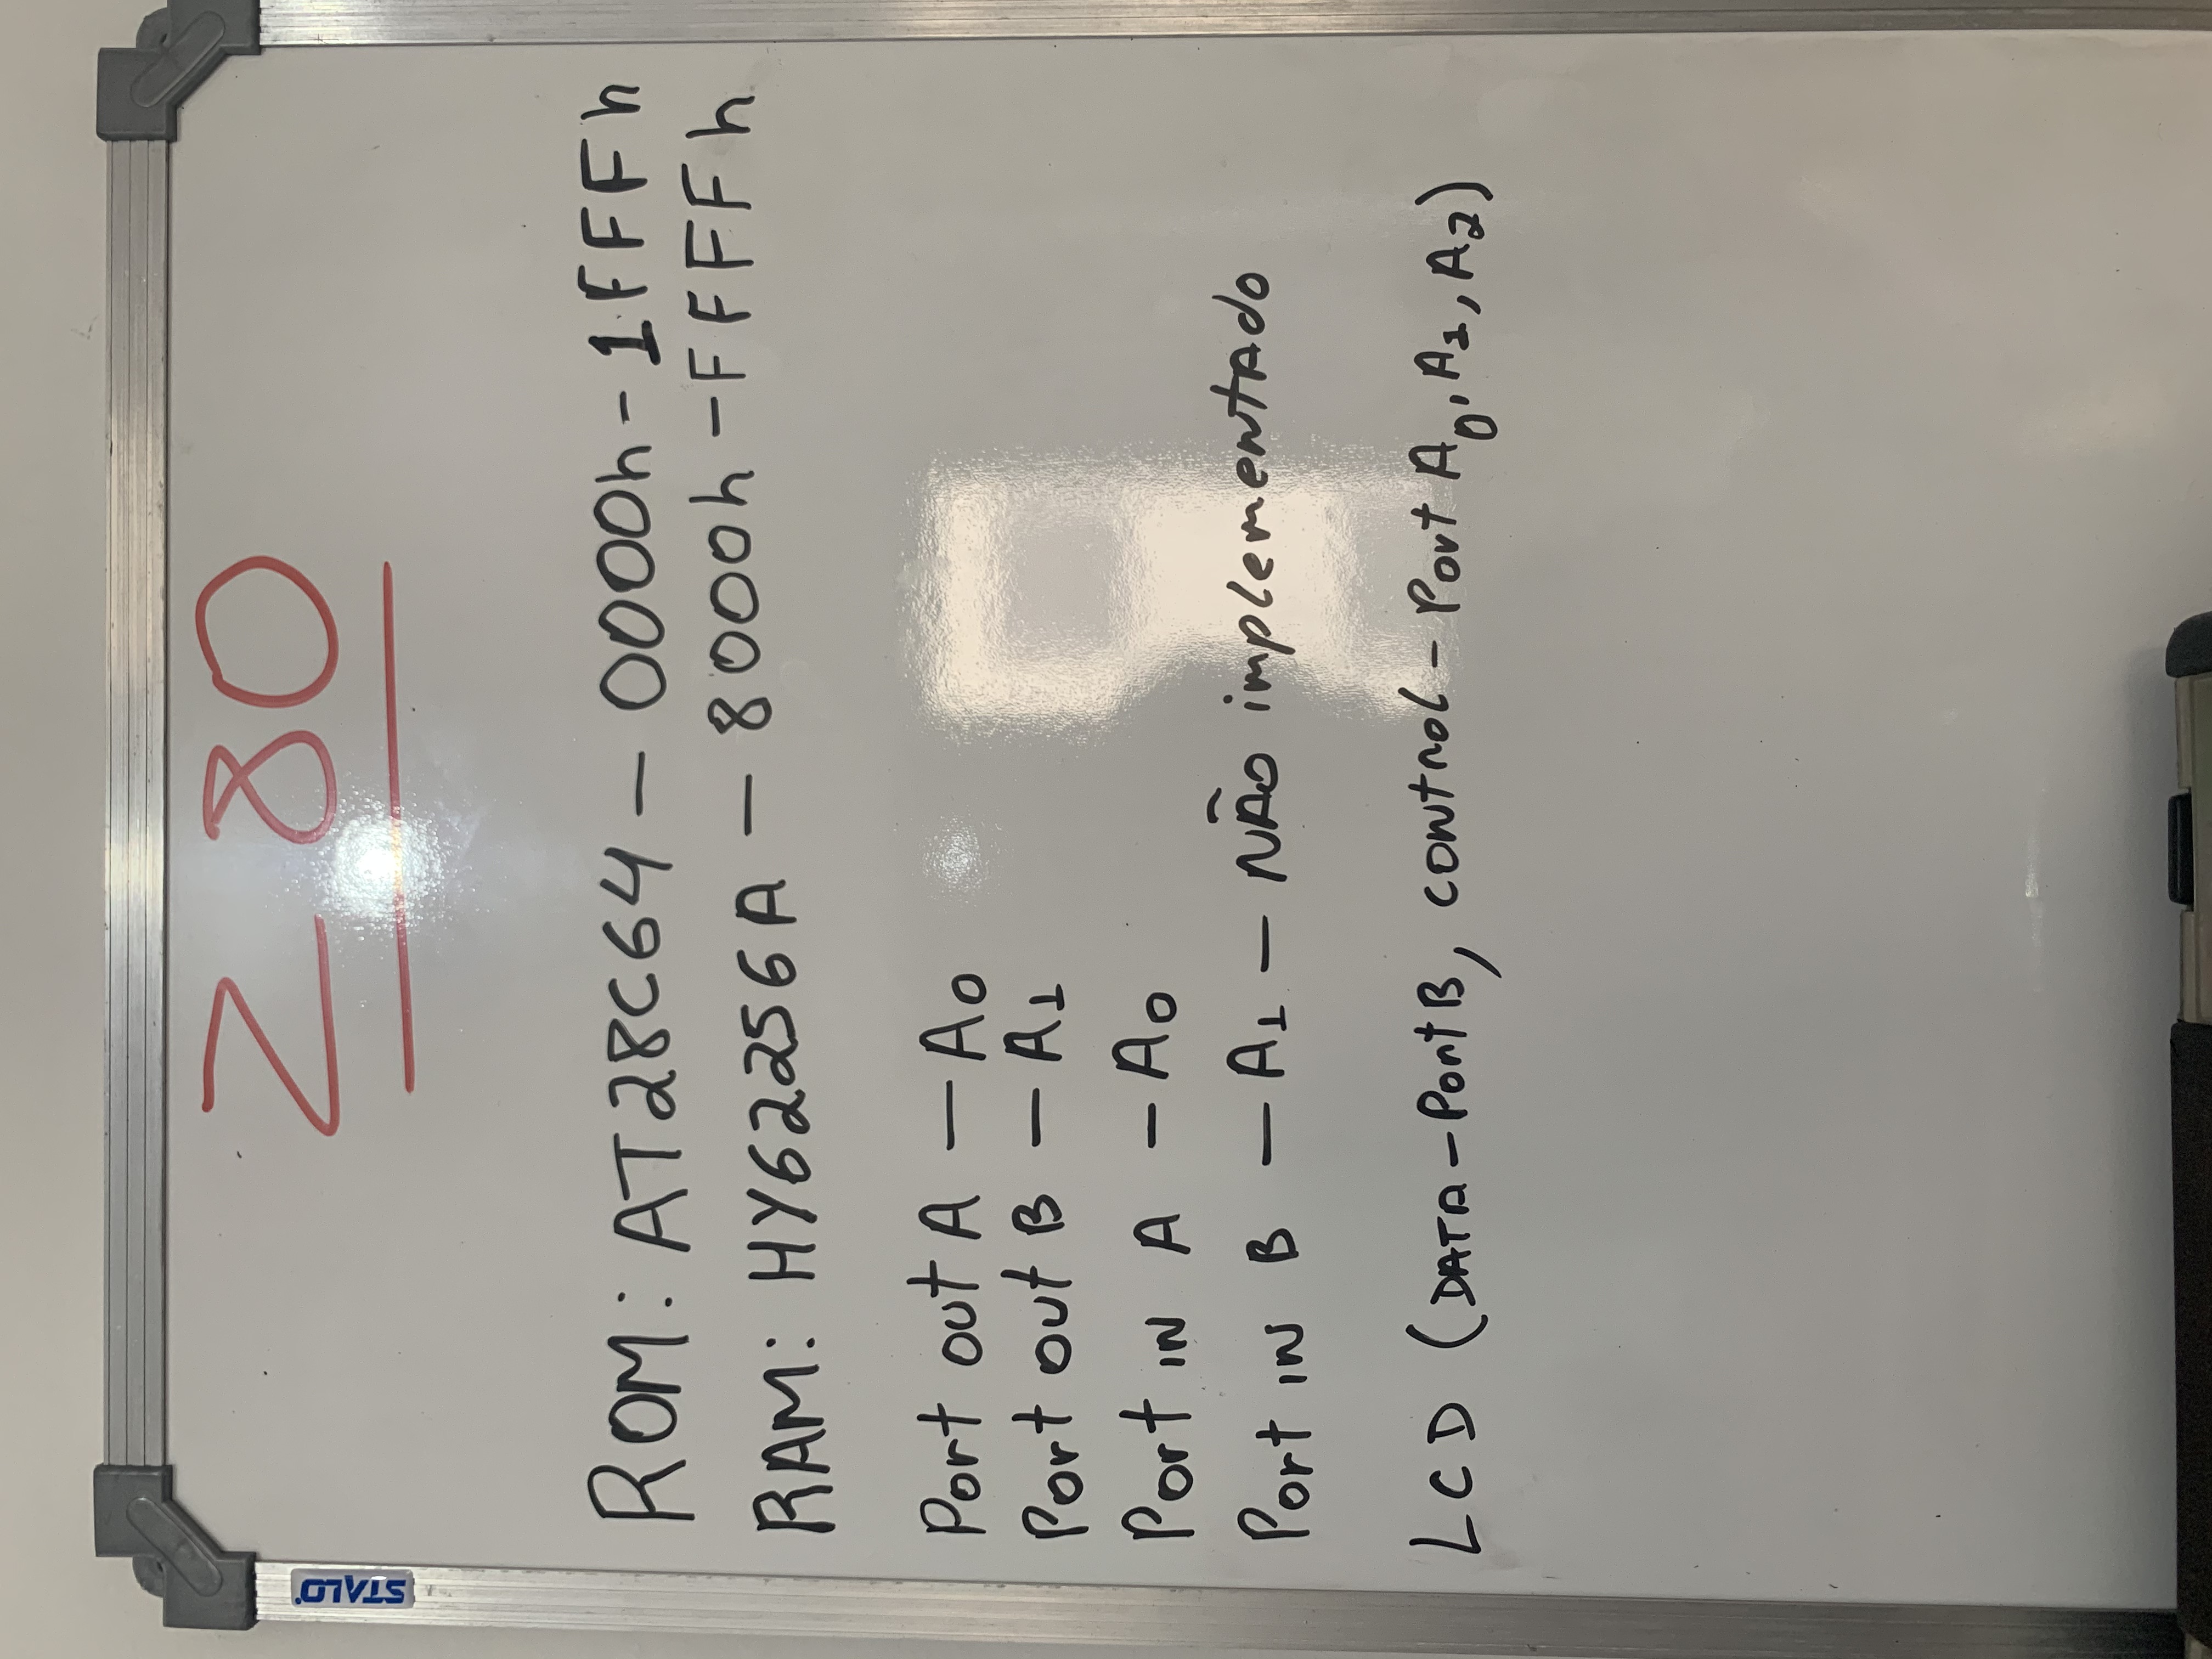 Z80
STALO
ROM: AT28C64 - 0000h - 1FFFh
RAM: HY62256A - 8000h - FFFFh
Port out A - A0
Port out B - A1
Port IN A - A0
Port IN B - A1 - NÃO implementado
LCD (DATA - Port B, control - Port A0, A1, A2)